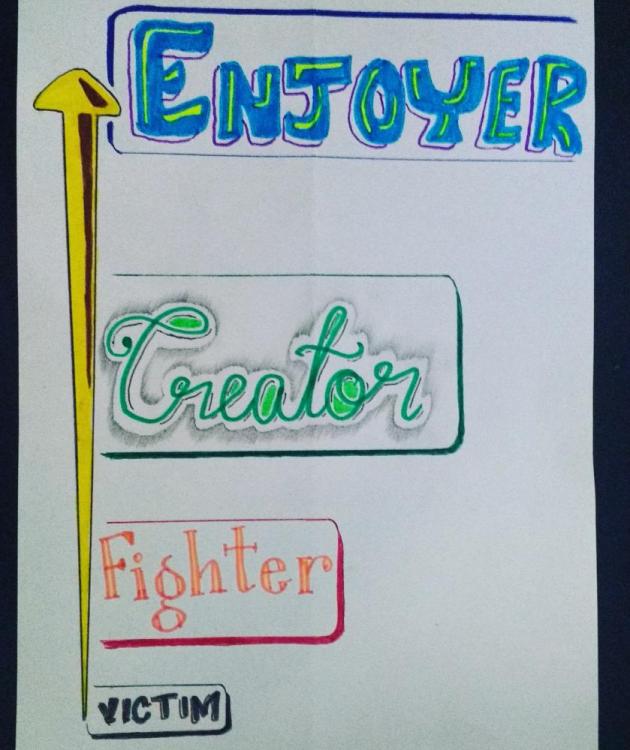 ENJOYER
Creator
Fighter
VICTIM